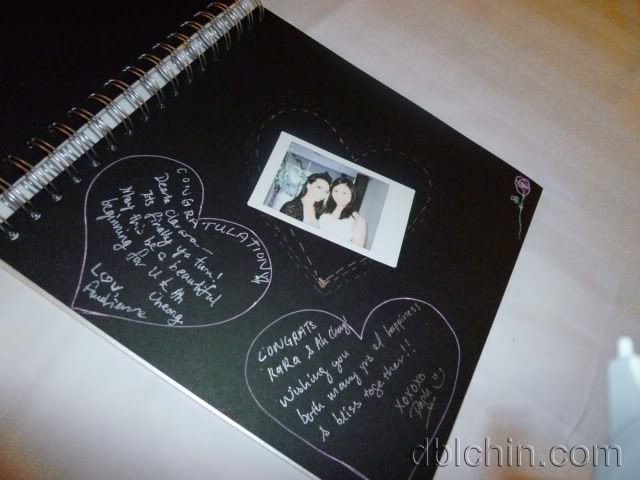 CONGRATULATIONS
Dear Clarara—
It's finally yr turn!
May this be a beautiful
beginning for U & Ah
Cheong
Love,
CONGRATS
RaRa & Ah Cheong!
Wishing you
both many yrs of happiness
& bliss together!!
XOXOXO
dblchin.com